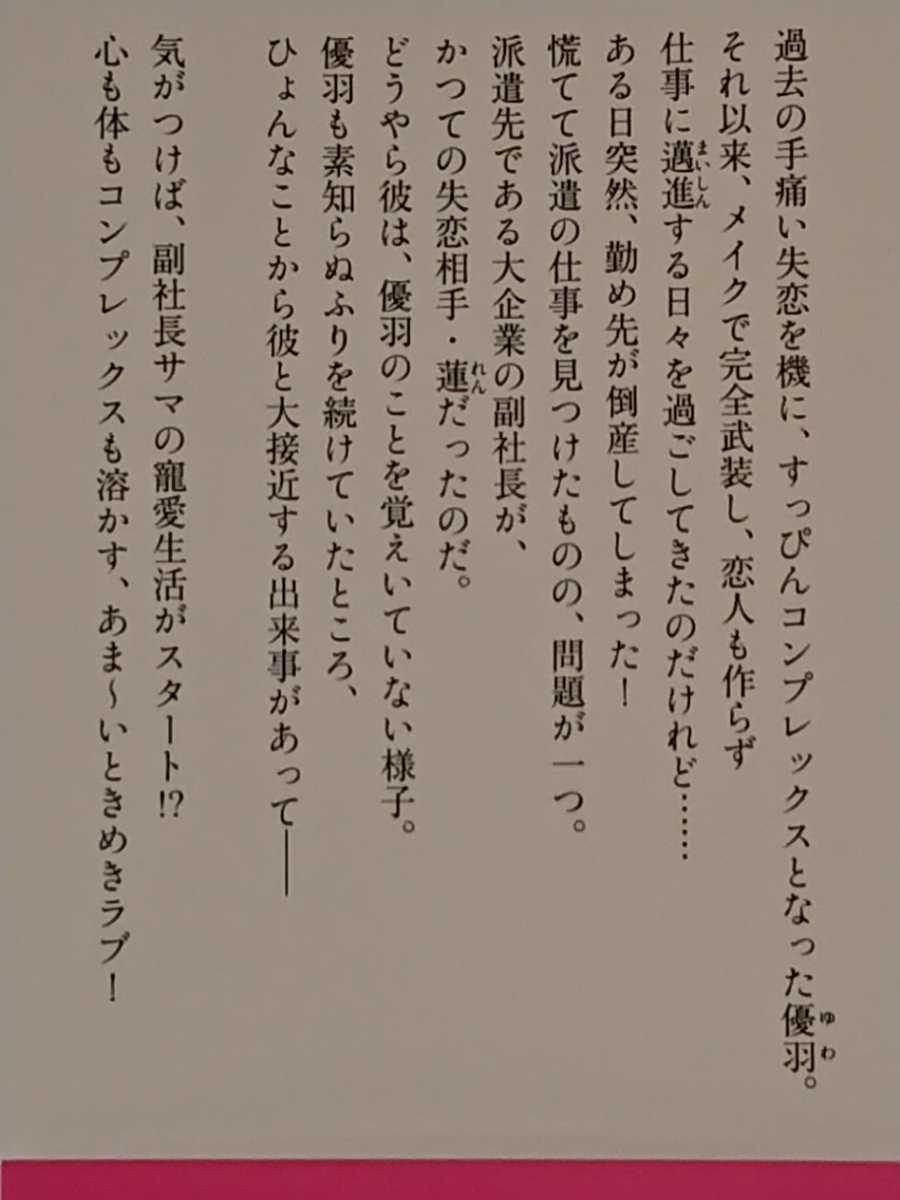 過去の手痛い失恋を機に、すっぴんコンプレックスとなった優羽。
ゆわ
それ以来、メイクで完全武装し、恋人も作らず
仕事に邁進する日々を過ごしてきたのだけれど……
まいしん
ある日突然、勤め先が倒産してしまった！
慌てて派遣の仕事を見つけたものの、問題が一つ。
派遣先である大企業の副社長が、
かつての失恋相手・蓮だったのだ。
れん
どうやら彼は、優羽のことを覚えいていない様子。
優羽も素知らぬふりを続けていたところ、
ひょんなことから彼と大接近する出来事があって――
気がつけば、副社長サマの寵愛生活がスタート!?
心も体もコンプレックスも溶かす、あま～いときめきラブ！